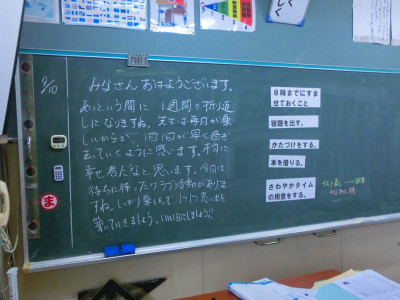 9/10
みなさん おはようございます。
あっという間に 1週間の折り返
しになりますね。先生は毎日が楽
しいからか、1日1日が早く過ぎ
さっていくように感じます。本当に
幸せ者だなと思います。今日は
待ちに待ったクラブ活動がありま
すね。しっかり楽しんで、1つ1つ思い出を
築いていきましょう。いい1日にしましょう!!
ま
8時までにすま
せておくこと
宿題を出す。
かたづけをする。
本を借りる。
さわやかタイム
の用意をする。